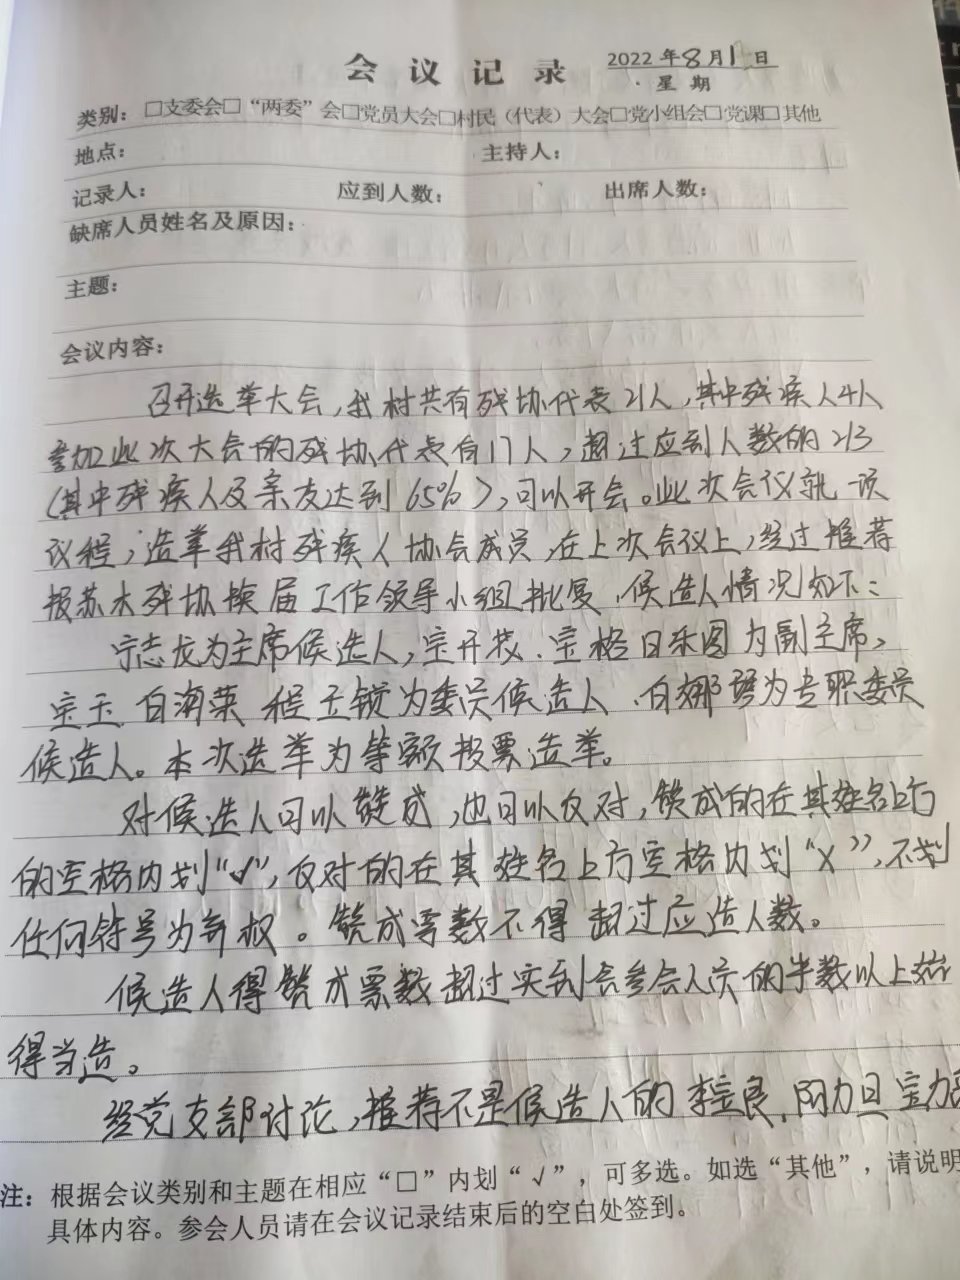 会议记录 2022年8月1日
星期
类别：□支委会□“两委”会□党员大会□村民（代表）大会□党小组会□党课□其他
地点： 主持人：
记录人： 应到人数： 出席人数：
缺席人员姓名及原因：
主题：
会议内容：
召开选举大会，我村共有残协代表21人，其中残疾人4人
参加此次大会的残协代表有17人，超过应到人数的2/3
（其中残疾人及亲友达到65%），可以开会。此次会议就一项
议程，选举我村残疾人协会成员，在上次会议上，经过推荐
报苏木残协换届工作领导小组批复，候选人情况如下：
宁志龙为主席候选人，宝开花、宝格日乐图为副主席，
宝玉 白海荣 程玉锁为委员候选人、白娜琴为专职委员
候选人。本次选举为等额投票选举。
对候选人可以赞成，也可以反对，赞成的在其姓名上方
的空格内划“√”，反对的在其姓名上方空格内划“X”，不划
任何符号为弃权。赞成票数不得超过应选人数。
候选人得赞成票数超过实到会参会人员的半数以上始
得当选。
经党支部讨论，推荐不是候选人的李宝良、阿力旦 宝力
注：根据会议类别和主题在相应“□”内划“√”，可多选。如选“其他”，请说明
具体内容。参会人员请在会议记录结束后的空白处签到。